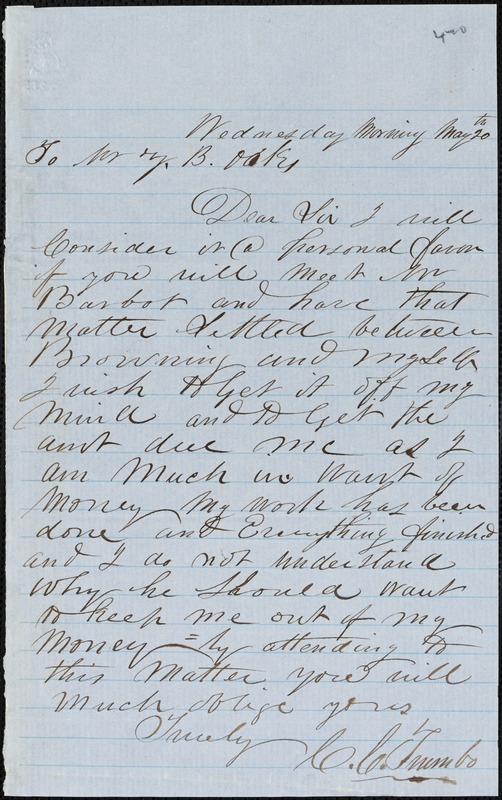 420
Wednesday Morning May 20th
To Mr Z. B. Oakes
Dear Sir I will
Consider it a personal favor
if you will meet Mr
Barbot and have that
matter Settled between
Browning and myself
I wish to Get it off my
mind and to Get the
amt due me as I
am Much in want of
Money My work has been
done and Everything finished
and I do not understand
Why he Should want
to keep me out of my
Money = by attending to
this Matter you will
Much oblige yours
Truely
C. C. Trumbo